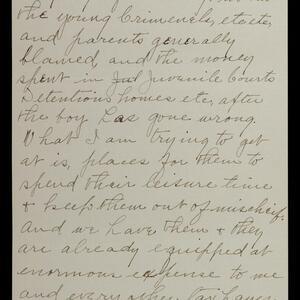 the young Crimenels, etc etc,
and parents generally
blamed, and the money
spent in Jud Juvenile Courts
Detentions homes etc, after
the boy has gone wrong.
What I am trying to get
at is, places for them to
spend their leisure time
+ keep them out of mischief.
And we have them + they
are already equipped at
enormous expense to me
and every other tax payer